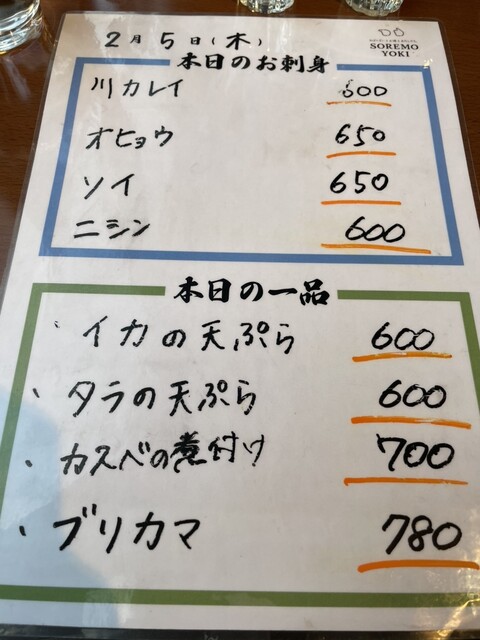 2月5日(木)
SOREMO
YOKI
本日のお刺身
川カレイ 600
オヒョウ 650
ソイ 650
ニシン 600
本日の一品
・イカの天ぷら 600
・タラの天ぷら 600
・カスベの煮付け 700
・ブリカマ 780